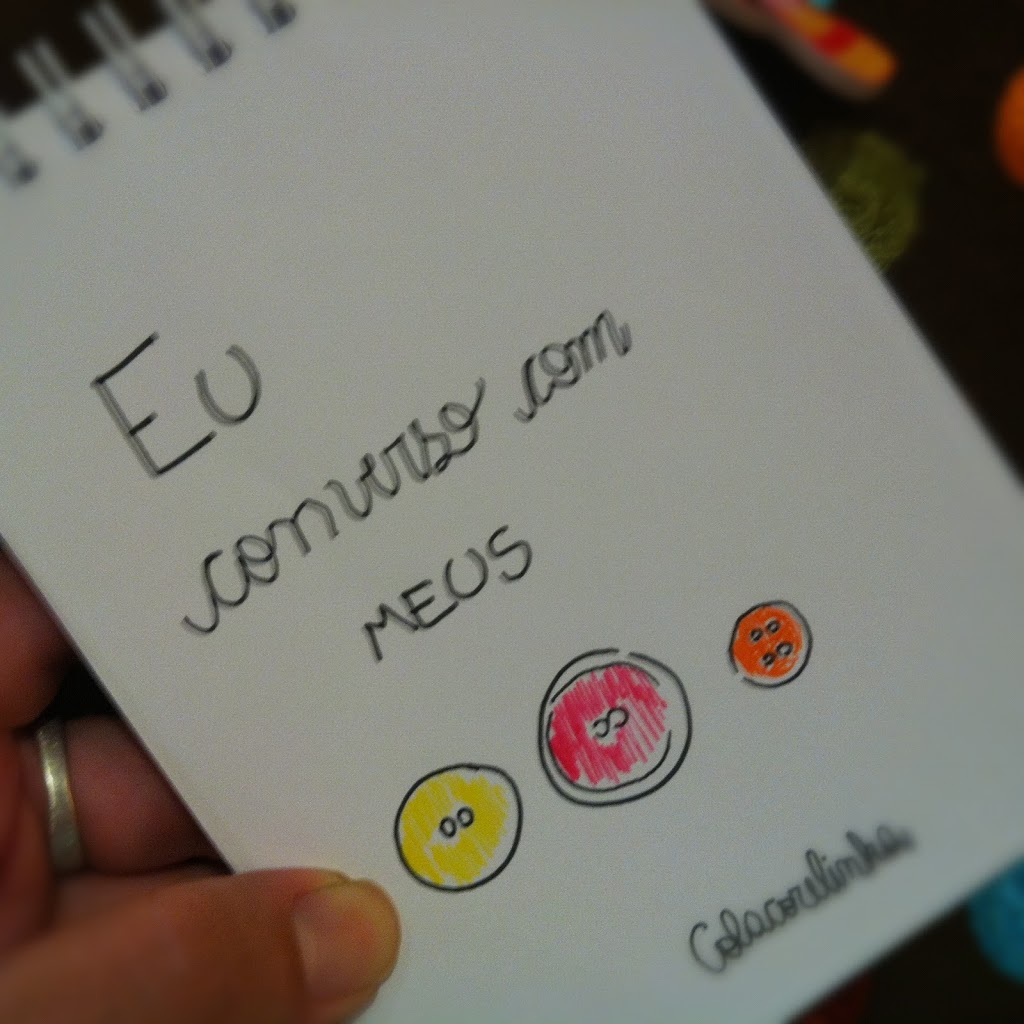 Eu
converso com
MEUS
Colacorelinha